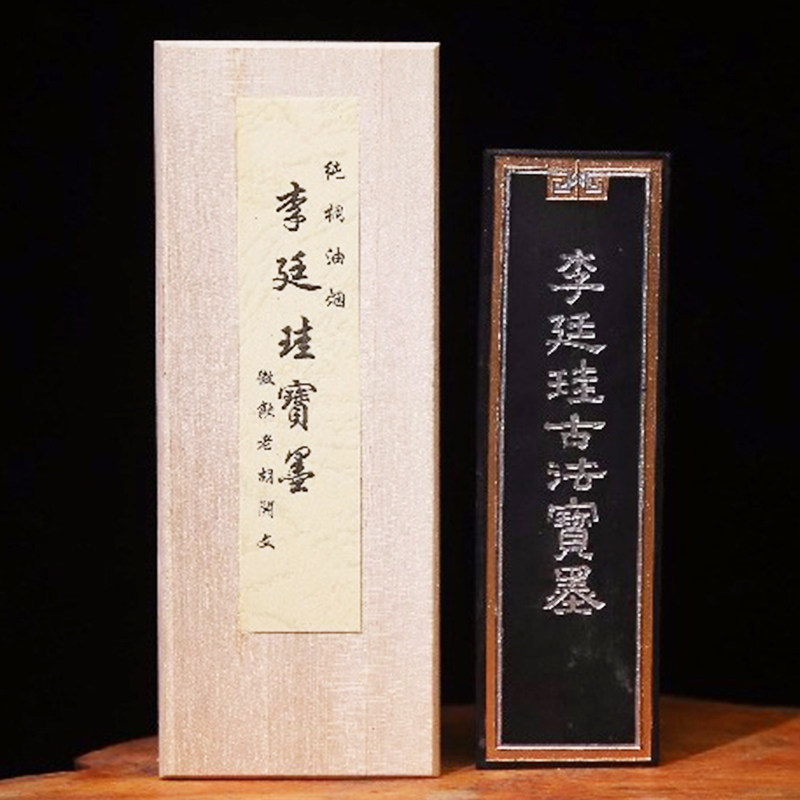 純桐油烟
李廷珪寶墨
徽歙老胡開文
李廷珪古法寶墨